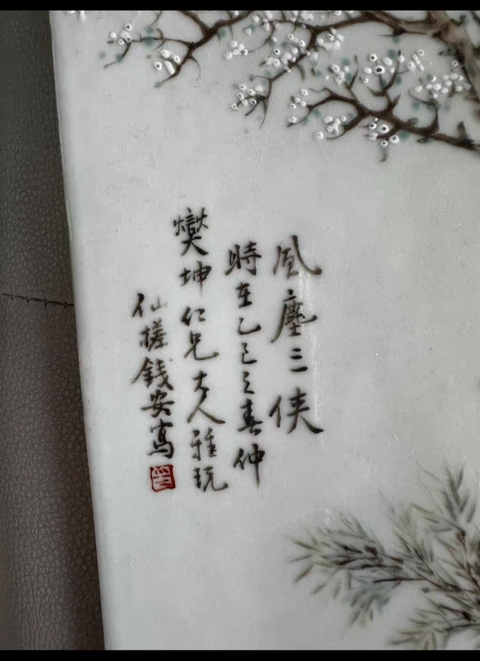 風塵三俠
時在乙巳之春仲
燮坤仁兄大人雅玩
仙槎錢安寫